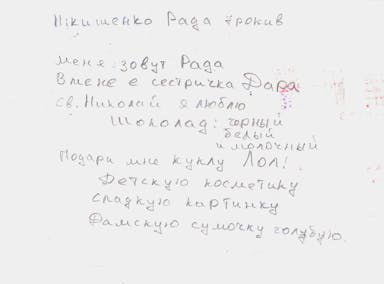 Нікишенко Рада 4років
меня зовут Рада
В мене є сестричка Дара
св. Николай я люблю
Шоколад: чорный
белый
и молочный
Подари мне куклу Лол!
Детскую косметику
сладкую картинку
Дамскую сумочку голубую.